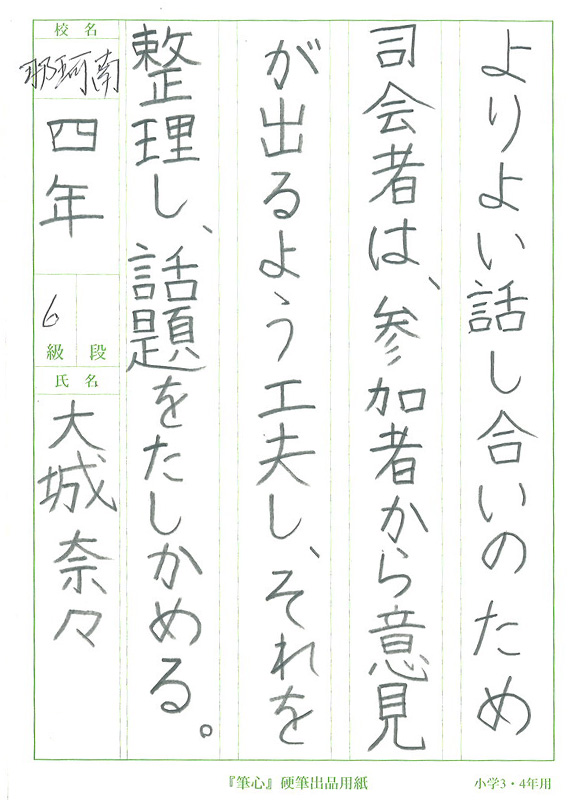 よりよい話し合いのため
司会者は、参加者から意見
が出るよう工夫し、それを
整理し、話題をたしかめる。
校名
那珂南
四年
6
級 段
氏名
大城奈々
『筆心』硬筆出品用紙
小学3・4年用